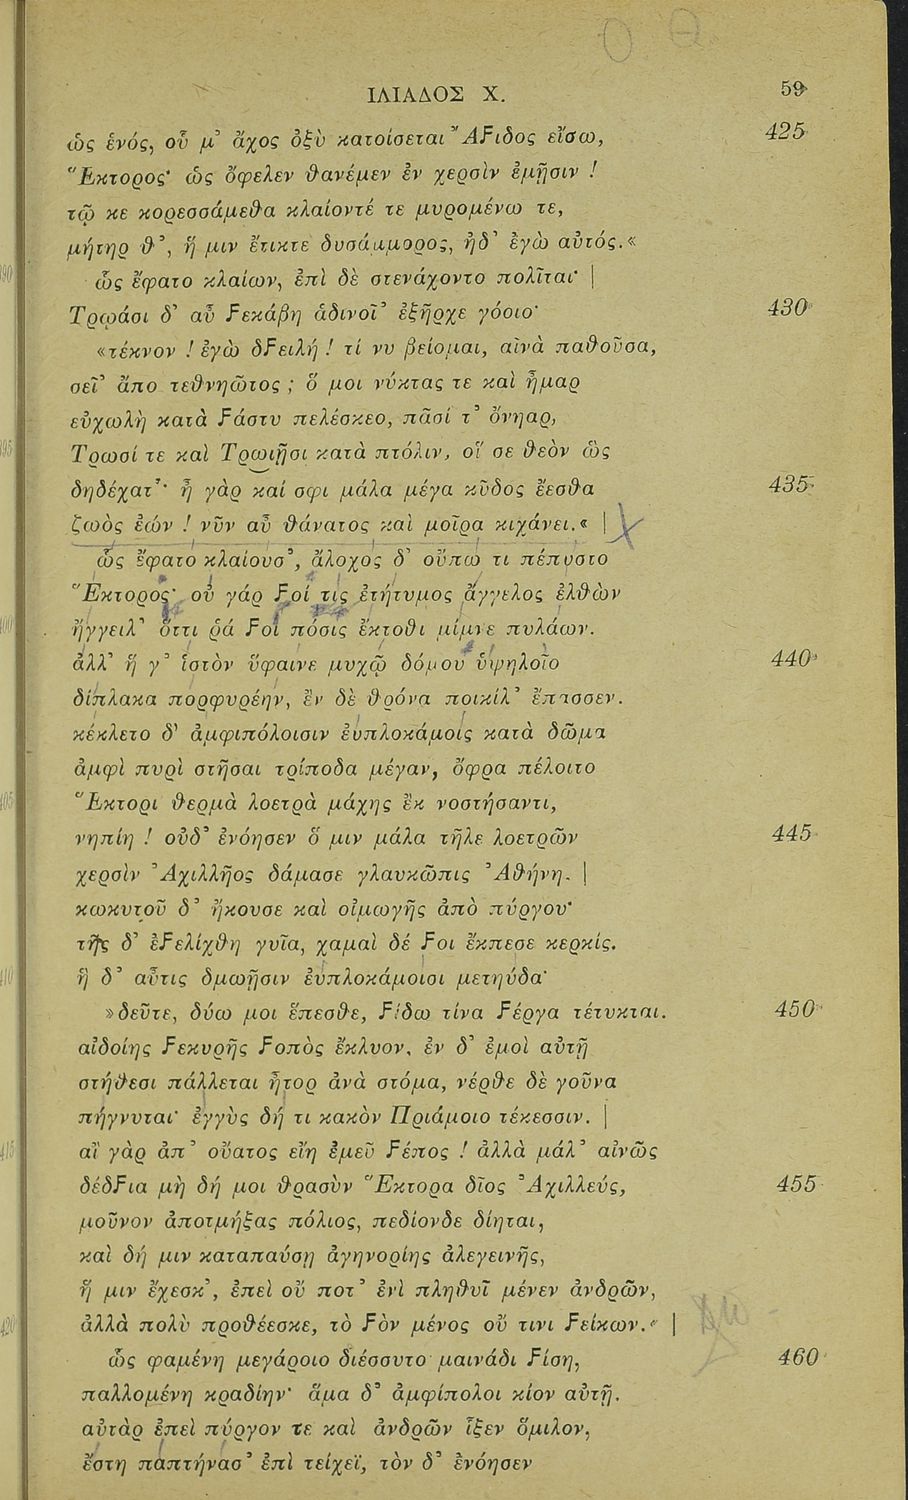 ΙΛΙΑΔΟΣ Χ. 59
ὡς ἑνός, οὗ μ’ ἄχος ὀξὺ κατοίσεται Ἄϝιδος εἴσω, 425
Ἕκτορος· ὡς ὄφελεν θανέμεν ἐν χερσὶν ἐμῇσιν !
τῶ κε κορεσσάμεθα κλαίοντέ τε μυρομένω τε,
μήτηρ θ’, ἥ μιν ἔτικτε δυσάμμορος, ἠδ’ ἐγὼ αὐτός.«
ὣς ἔφατο κλαίων, ἐπὶ δὲ στενάχοντο πολῖται· |
Τρῳάσι δ’ αὖ Ϝεκάβη ἁδινοῖ’ ἐξῆρχε γόοιο· 430
«τέκνον ! ἐγὼ δϝειλή ! τί νυ βείομαι, αἰνὰ παθοῦσα,
σεῖ’ ἄπο τεθνηῶτος ; ὅ μοι νύκτας τε καὶ ἦμαρ
εὐχωλὴ κατὰ ϝάστυ πελέσκεο, πᾶσί τ’ ὄνηαρ,
Τρωσί τε καὶ Τρωιῇσι κατὰ πτόλιν, οἵ σε θεὸν ὣς
δηδέχατ’· ἦ γὰρ καί σφι μάλα μέγα κῦδος ἔεσθα 435
ζωὸς ἐών ! νῦν αὖ θάνατος καὶ μοῖρα κιχάνει.« |
ὣς ἔφατο κλαίουσ’, ἄλοχος δ’ οὔπω τι πέπυστο
Ἕκτορος· οὐ γάρ ϝοί τις ἐτήτυμος ἄγγελος ἐλθὼν
ἤγγειλ’ ὅττι ῥά ϝοἱ πόσις ἔκτοθι μίμνε πυλάων.
ἀλλ’ ἥ γ’ ἱστὸν ὕφαινε μυχῷ δόμου ὑψηλοῖο 440
δίπλακα πορφυρέην, ἐν δὲ θρόνα ποικίλ’ ἔπασσεν.
κέκλετο δ’ ἀμφιπόλοισιν ἐυπλοκάμοις κατὰ δῶμα
ἀμφὶ πυρὶ στῆσαι τρίποδα μέγαν, ὄφρα πέλοιτο
Ἕκτορι θερμὰ λοετρὰ μάχης ἐκ νοστήσαντι,
νηπίη ! οὐδ’ ἐνόησεν ὅ μιν μάλα τῆλε λοετρῶν 445
χερσὶν Ἀχιλλῆος δάμασε γλαυκῶπις Ἀθήνη. |
κωκυτοῦ δ’ ἤκουσε καὶ οἰμωγῆς ἀπὸ πύργου·
τῆς δ’ ἐϝελίχθη γυῖα, χαμαὶ δέ ϝοι ἔκπεσε κερκίς.
ἣ δ’ αὖτις δμωῇσιν ἐυπλοκάμοισι μετηύδα·
»δεῦτε, δύω μοι ἕπεσθε, ϝίδω τίνα ϝέργα τέτυκται. 450
αἰδοίης ϝεκυρῆς ϝοπὸς ἔκλυον, ἐν δ’ ἐμοὶ αὐτῇ
στήθεσι πάλλεται ἦτορ ἀνὰ στόμα, νέρθε δὲ γοῦνα
πήγνυται· ἐγγὺς δή τι κακὸν Πριάμοιο τέκεσσιν. |
αἲ γὰρ ἀπ’ οὔατος εἴη ἐμεῦ ϝέπος ! ἀλλὰ μάλ’ αἰνῶς
δέδϝια μὴ δή μοι θρασὺν Ἕκτορα δῖος Ἀχιλλεύς, 455
μοῦνον ἀποτμήξας πόλιος, πεδίονδε δίηται,
καὶ δή μιν καταπαύσῃ ἀγηνορίης ἀλεγεινῆς,
ἥ μιν ἔχεσκ’, ἐπεὶ οὔ ποτ’ ἐνὶ πληθυῖ μένεν ἀνδρῶν,
ἀλλὰ πολὺ προθέεσκε, τὸ ϝὸν μένος οὔ τινι ϝείκων.« |
ὣς φαμένη μεγάροιο διέσσυτο μαινάδι ϝίση, 460
παλλομένη κραδίην· ἅμα δ’ ἀμφίπολοι κίον αὐτῇ.
αὐτὰρ ἐπεὶ πύργον τε καὶ ἀνδρῶν ἷξεν ὅμιλον,
ἔστη παπτήνασ’ ἐπὶ τείχεϊ, τὸν δ’ ἐνόησεν